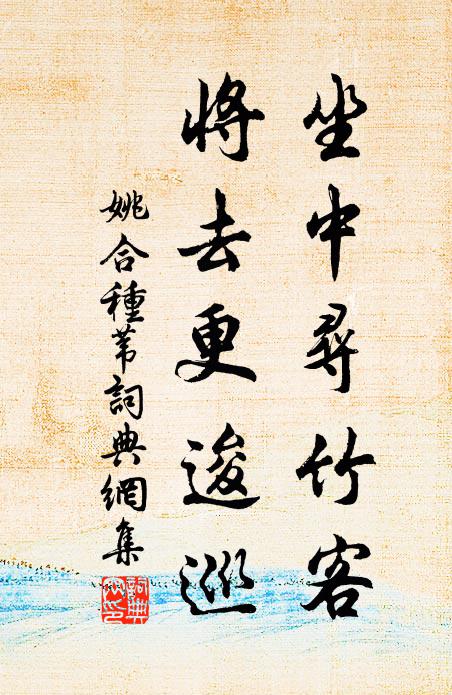 坐中尋竹客
將去更逡巡
姚合種葦詞典網集